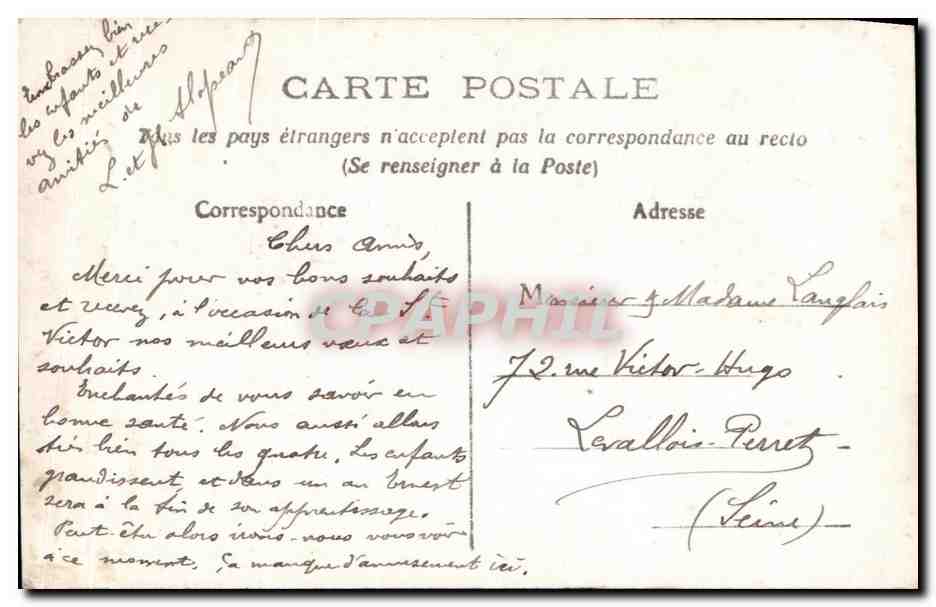 CARTE POSTALE
Tous les pays étrangers n'acceptent pas la correspondance au recto
(Se renseigner à la Poste)
Correspondance
Chers Amis,
Merci pour vos bons souhaits
et recevez, à l'occasion de la St
Victor nos meilleurs vœux et
souhaits.
Enchantés de vous savoir en
bonne santé. Nous aussi allons
très bien tous les quatre. Les enfants
grandissent, et dans un an Ernest
sera à la fin de son apprentissage.
Peut-être alors irons-nous vous voir
à ce moment. Ça manque d'amusement ici.
Embrassez bien
les enfants et rece
vez les meilleures
amitiés de
L. et
Adresse
Monsieur & Madame Langlais
72. rue Victor-Hugo
Levallois-Perret
(Seine)
CPAPHIL